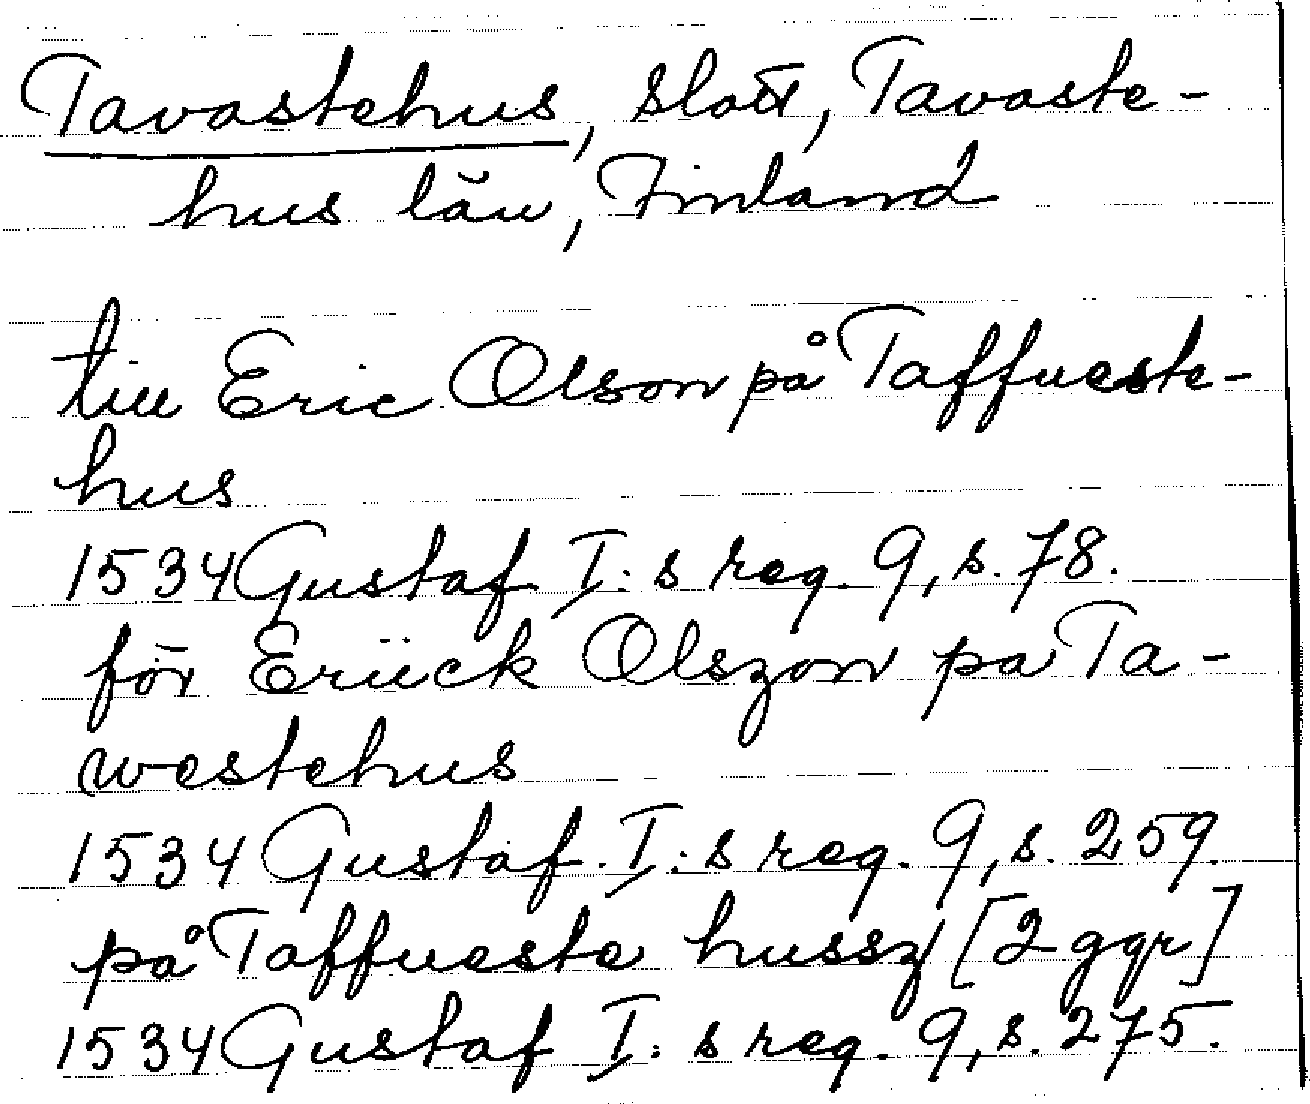 Tavastehus, slott, Tavaste-
hus län, Finland
till Eric Olson på Taffueste-
hus
1534 Gustaf I:s reg. 9, s. 78.
för Eriick Olszon pa Ta-
westehus
1534 Gustaf I:s reg. 9, s. 259.
på Taffueste hussz [2 ggr]
1534 Gustaf I:s reg. 9, s. 275.